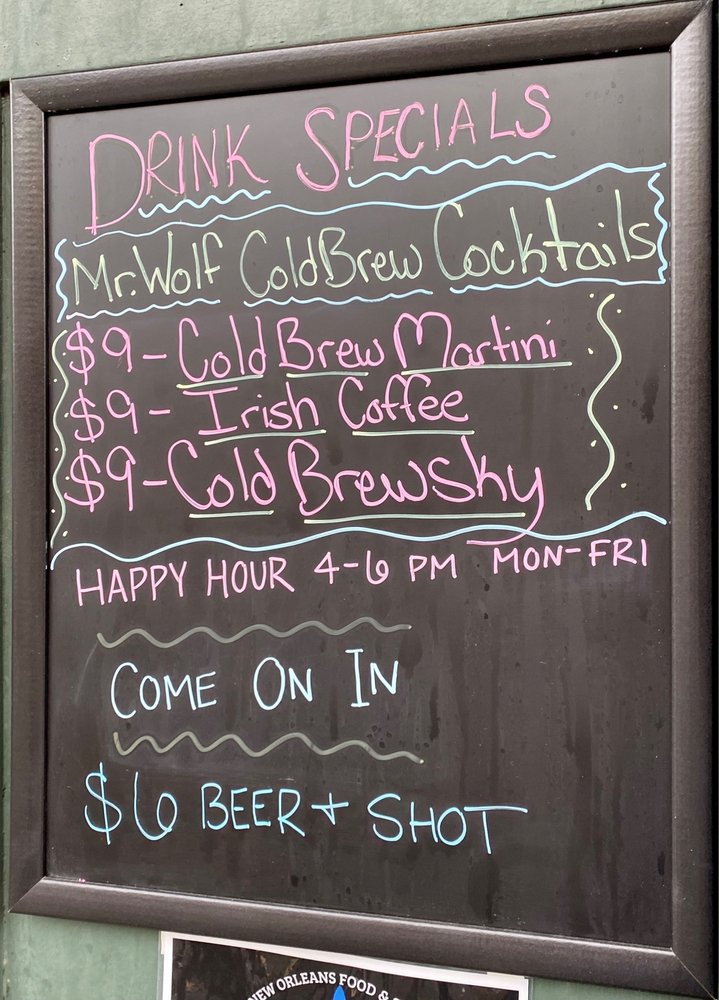 DRINK SPECIALS
Mr. Wolf Cold Brew Cocktails
$9 - Cold Brew Martini
$9 - Irish Coffee
$9 - Cold Brewsky
HAPPY HOUR 4-6 PM MON-FRI
COME ON IN
$6 BEER + SHOT
NEW ORLEANS FOOD &